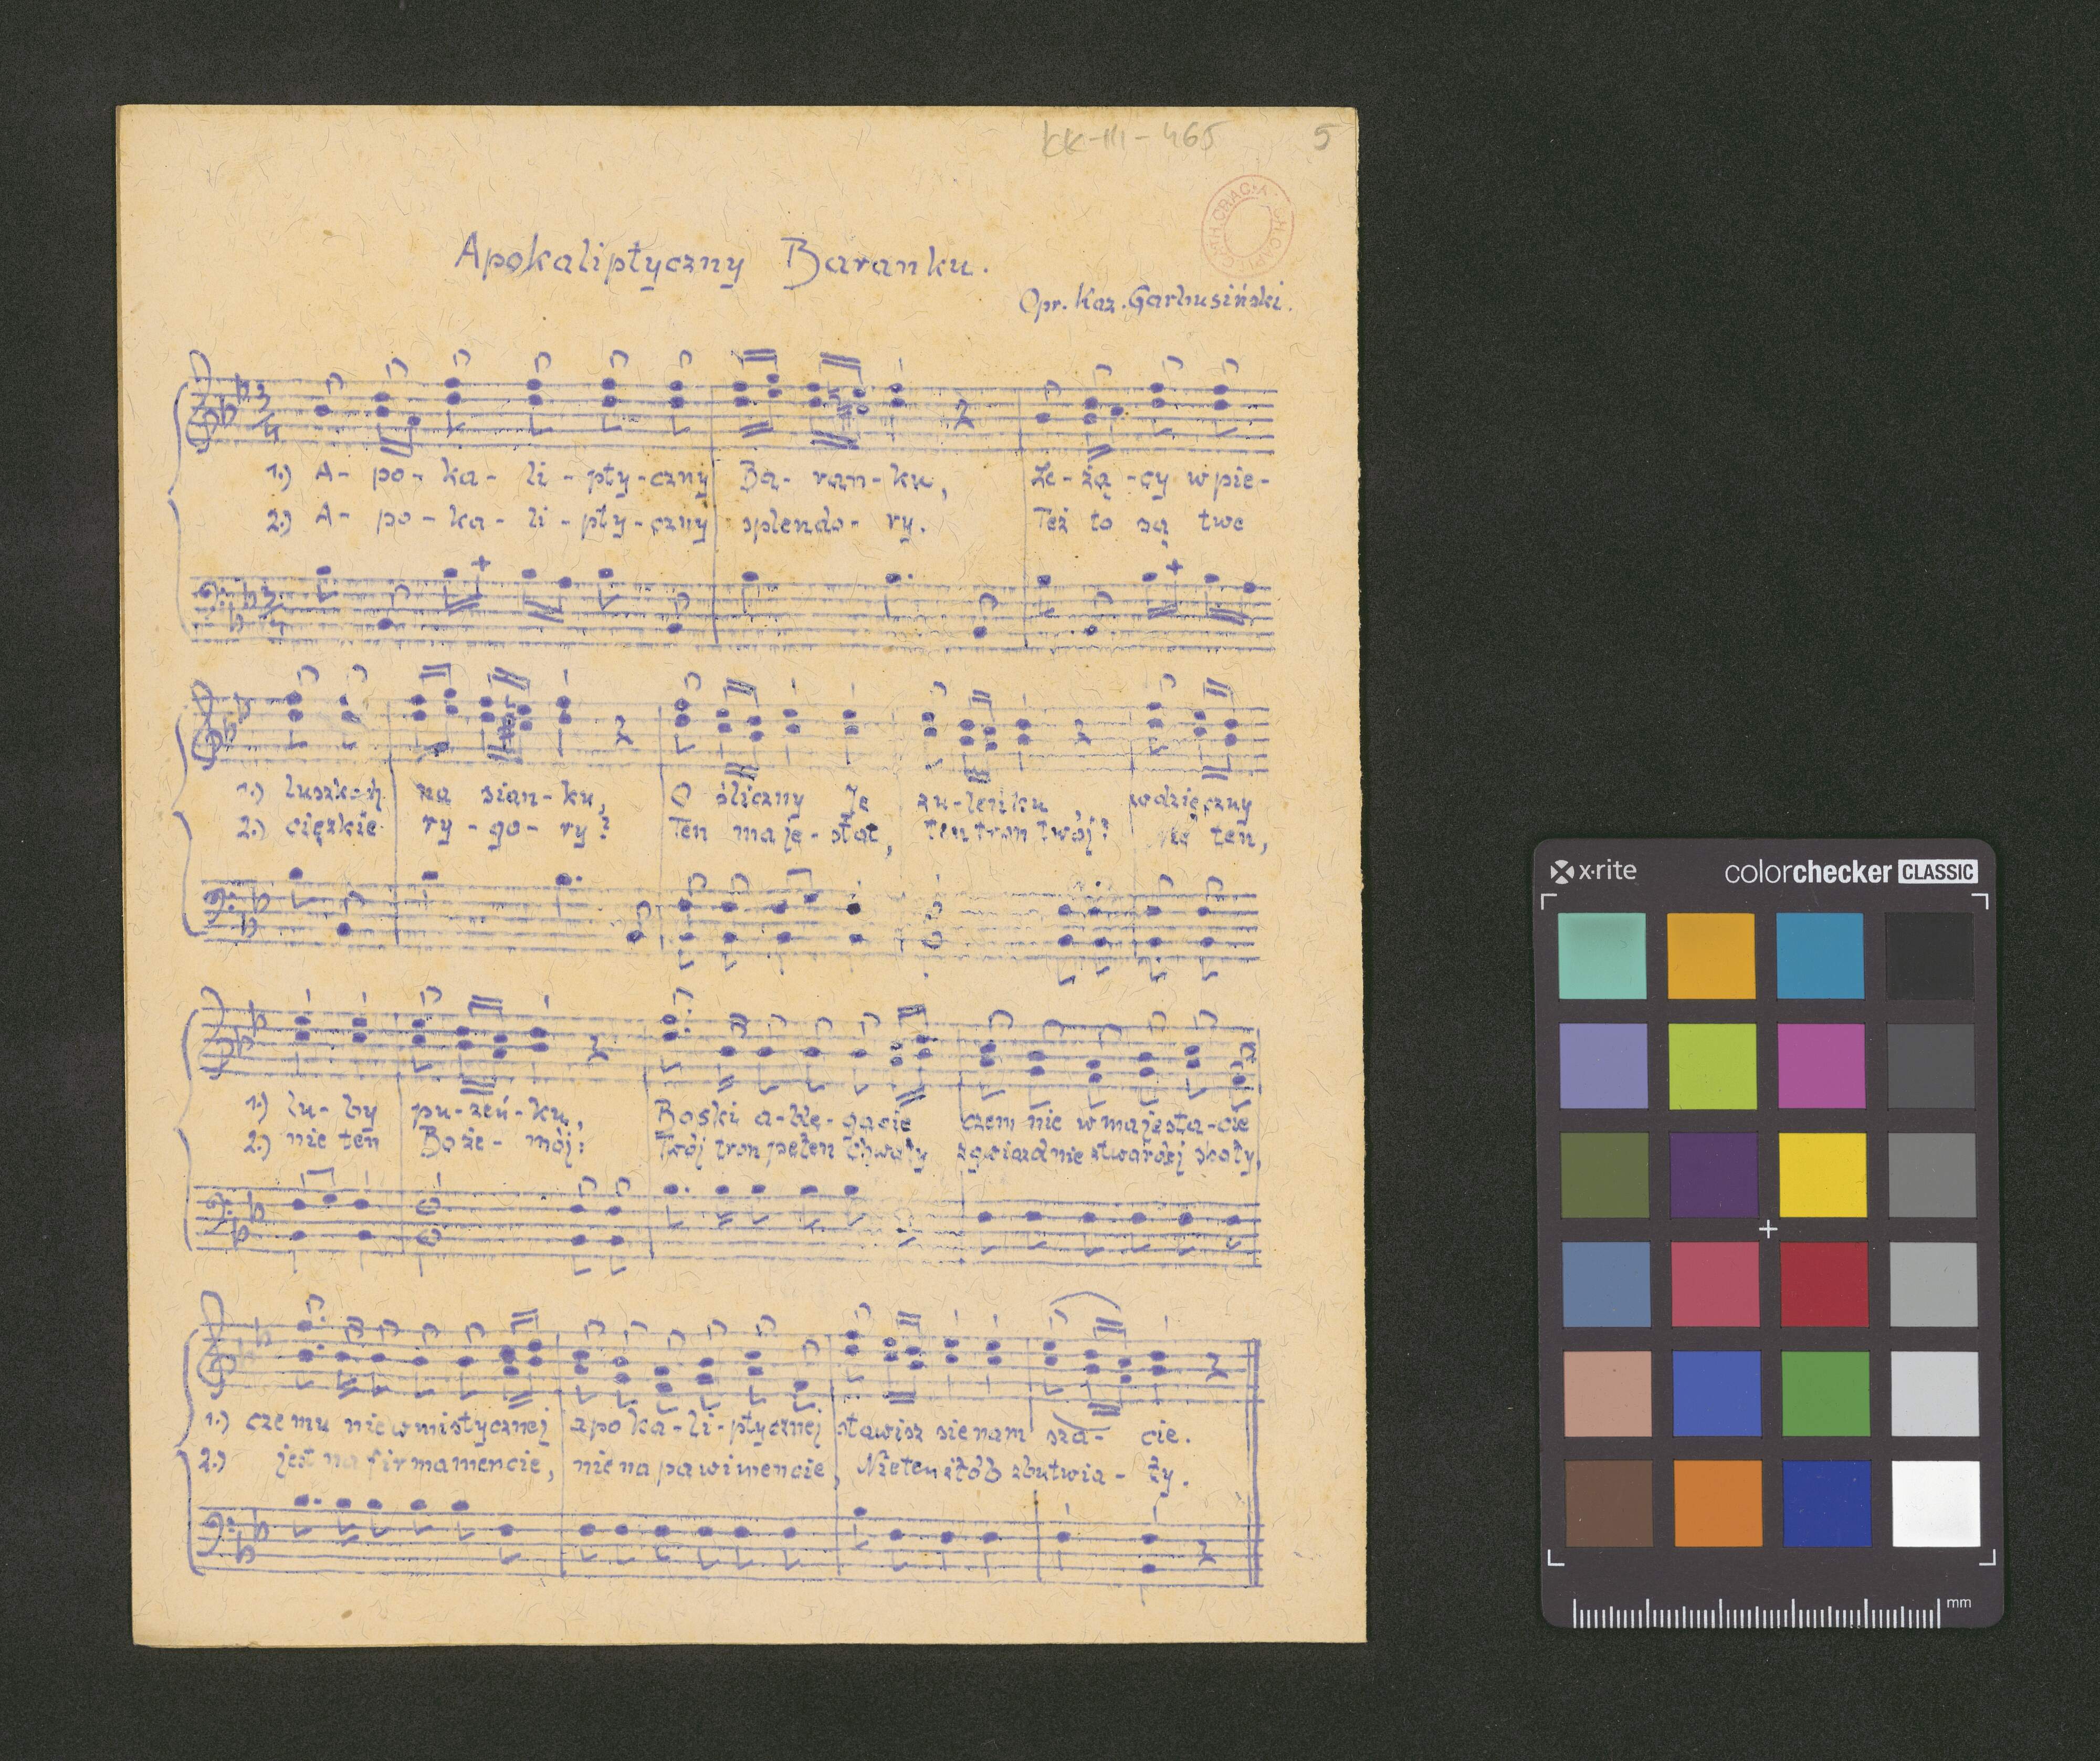 KK-III-465 5
Apokaliptyczny Baranku.
Opr. Kaz. Garbusiński.
1.) A- po- ka- li- pty-czny Ba- ran-ku, Le-żą-cy w pie-
2.) A- po- ka- li- pty-czny splendo- ry. Też to są twe
1.) luszkach na sian-ku, O śliczny Je zu-leńku, wdzięczny
2.) ciężkie ry-go-ry? Ten maje-stat, ten tron twój? nie ten,
1.) lu-by pu-zeń-ku,
2.) nie ten Boże- mój:
Boski a-ble-gacie czem nie w majesta-cie
Twój tron pełen chwały z gwiazd nie z twardej skały,
1.) czemu nie w mistycznej apo ka-li-ptycznej stawisz sie nam sza- cie.
2.) jest na firmamencie, nie na pawimencie, Nie ten żłób zbutwia- ły.
x·rite colorchecker CLASSIC
mm